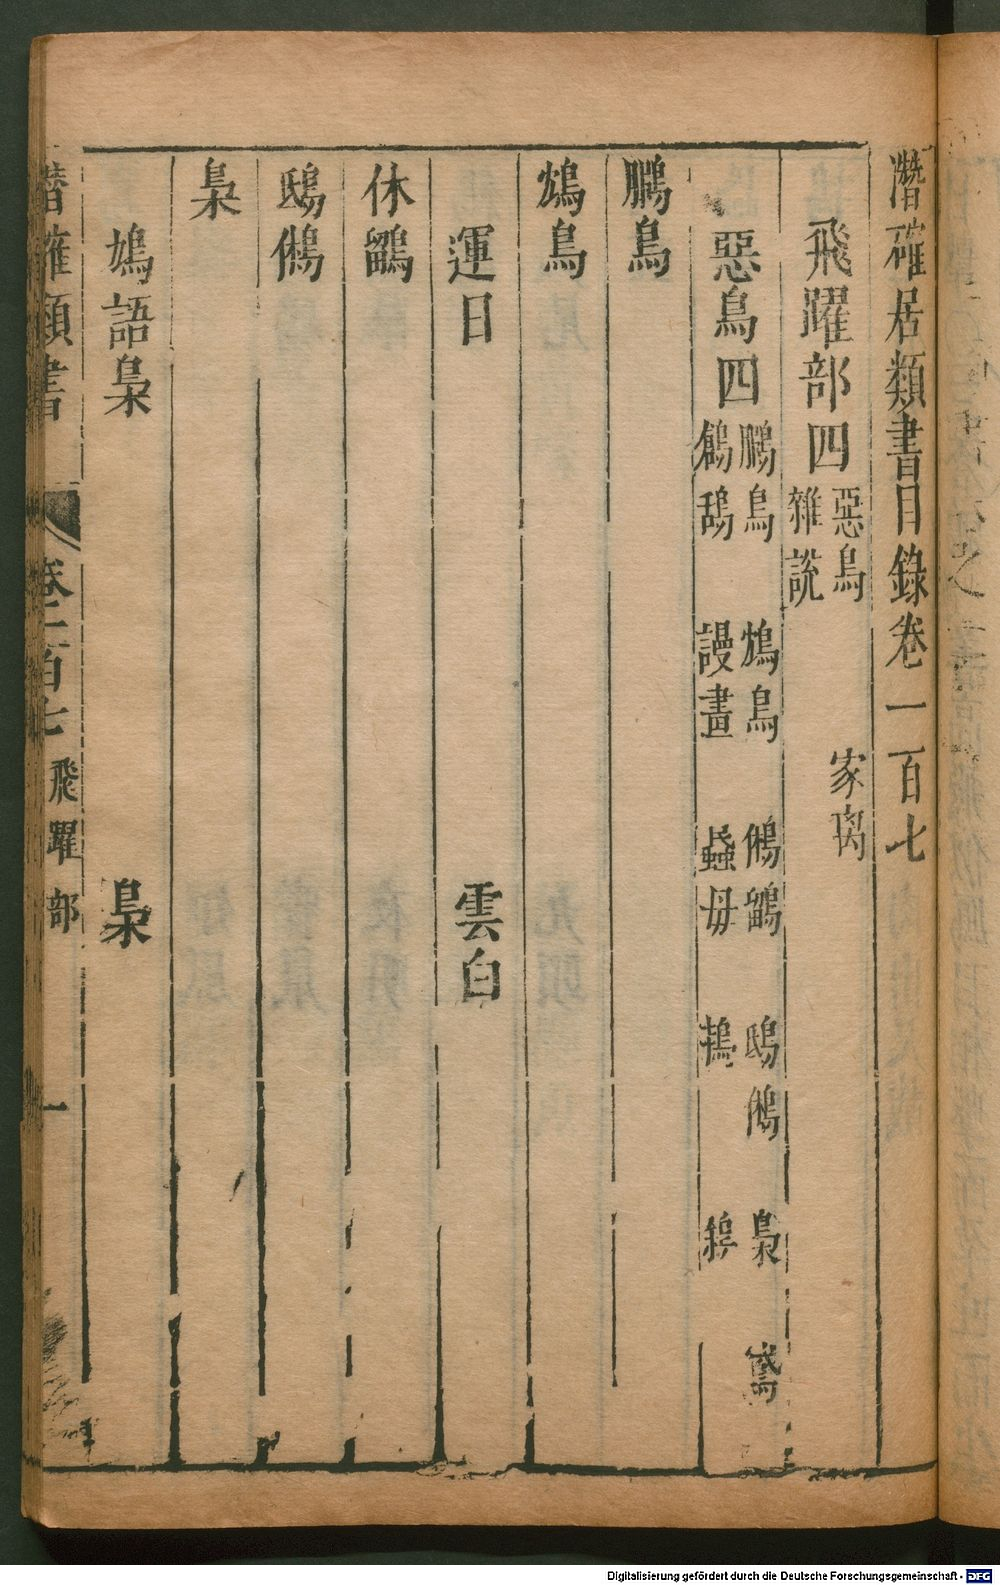 潛確居類書目錄卷一百七
飛躍部四 惡鳥 家禽
雜說
惡鳥四 鵩鳥 鴆鳥 鵂鶹 鴟鵂 梟 鳶
鶬鴰 謾畫 蟁母
鵩鳥
鴆鳥
運日 雲白
休鶹
鴟鵂
梟
鳩語梟 梟
潛確類書 卷一百七 飛躍部 一
Digitalisierung gefördert durch die Deutsche Forschungsgemeinschaft - DFG